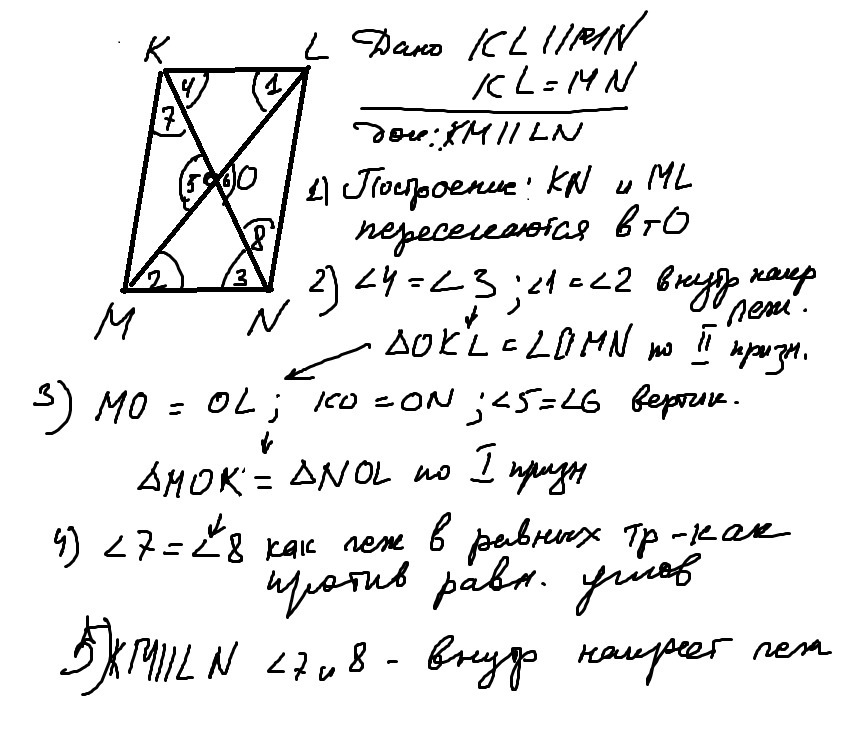 K L
4 1
7
5 6 O
8
2 3
M N
Дано KL || MN
KL = MN
Док: KM || LN
1) Построение: KN и ML
пересекаются в т O
2) ∠4 = ∠3 ; ∠1 = ∠2 внутр накр
леж.
ΔOKL = ∠OMN по II призн.
3) MO = OL ; KO = ON ; ∠5 = ∠6 вертик.
ΔMOK = ΔNOL по I призн
4) ∠7 = ∠8 как леж в равных тр-как
против равн. углов
5) KM || LN ∠7 и 8 - внутр накрест леж